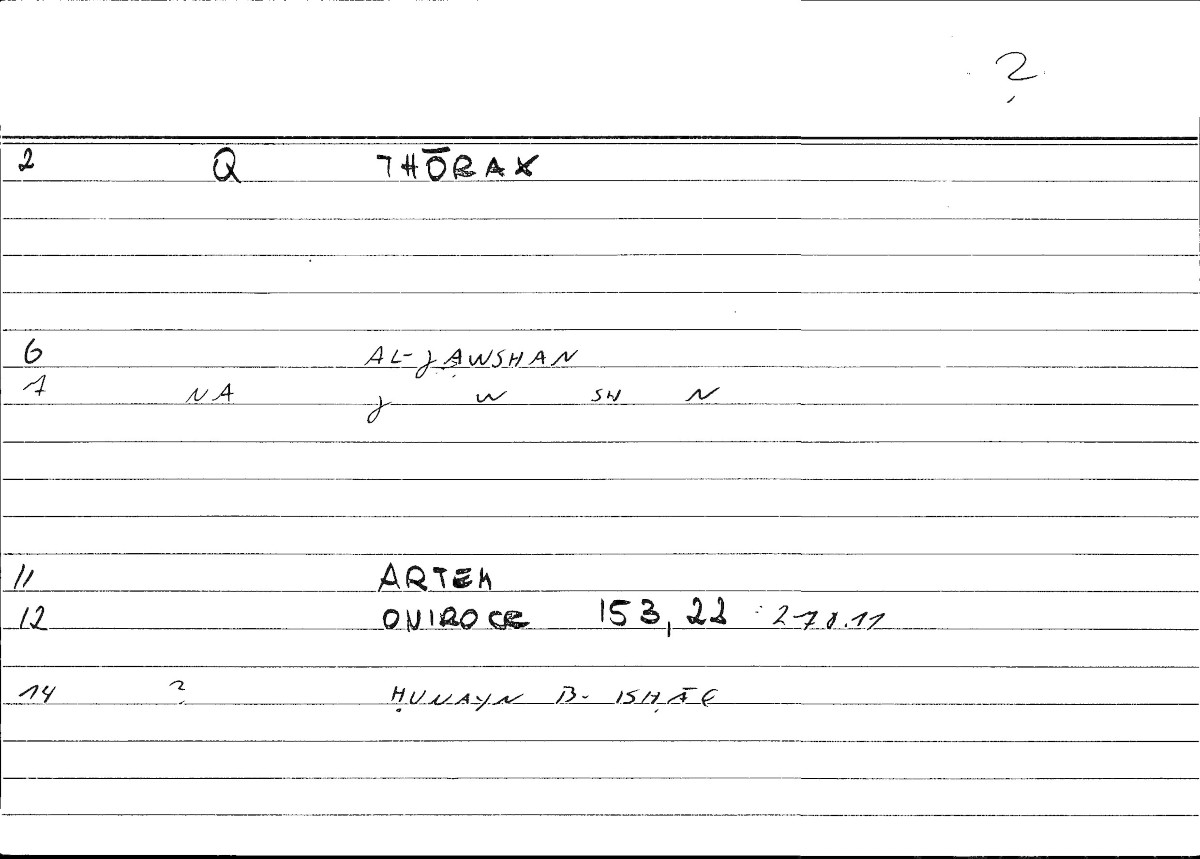 ?
2 Q THŌRAX
6 AL-JAWSHAN
7 NA J W SH N
11 ARTEM
12 ONIROCR 153, 22 : 278.11
14 ? ḤUNAYN B. ISḤĀQ